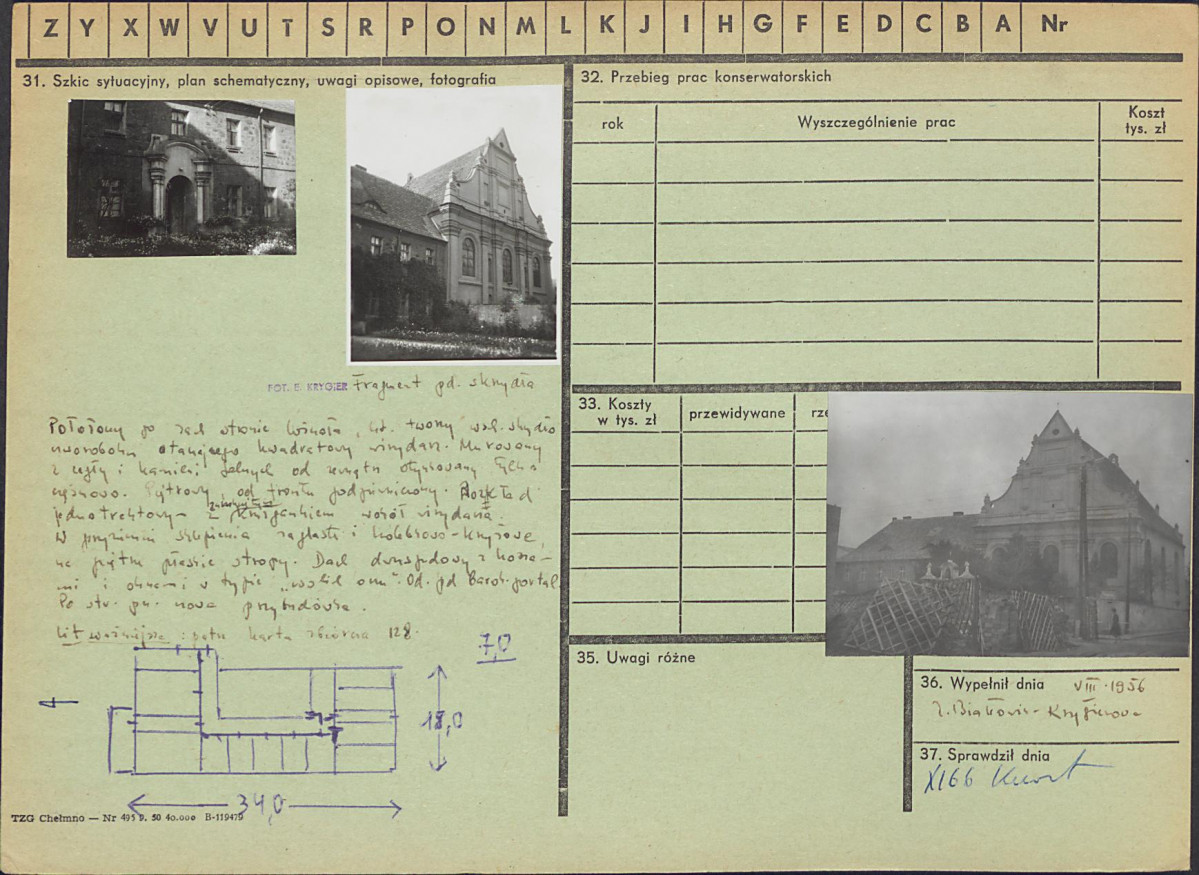 Z Y X W V U T S R P O N M L K J I H G F E D C B A Nr
31. Szkic sytuacyjny, plan schematyczny, uwagi opisowe, fotografia
FOT. E. KRYGIER Fragment pd. skrzydła
Położony po
czworoboku otaczającego kwadratowy wirydarz. Murowany
z cegły i kamieni polnych od zewnątrz otynkowany tylko
częściowo. Piętrowy, od frontu podpiwniczony. Rozkład
jednotraktowy z krużgankiem wokół wirydarza.
W przyziemiu sklepienia żaglaste i kolebkowo-krzyżowe,
na piętrze płaskie stropy. Dach dwuspadowy z
i oknami w typie „wolich oczu". Od pd barok. portal
Po str. pn. nowa przybudówka.
Lit ważniejsza: patrz karta zbiorcza 128.
7,0
18,0
34,0
TZG Chełmno — Nr 495 9. 50 40.000 B-119479
32. Przebieg prac konserwatorskich
rok
Wyszczególnienie prac
Koszt
tys. zł
33. Koszty
w tys. zł
przewidywane
rze
35. Uwagi różne
36. Wypełnił dnia VIII.1956
37. Sprawdził dnia
XI 66